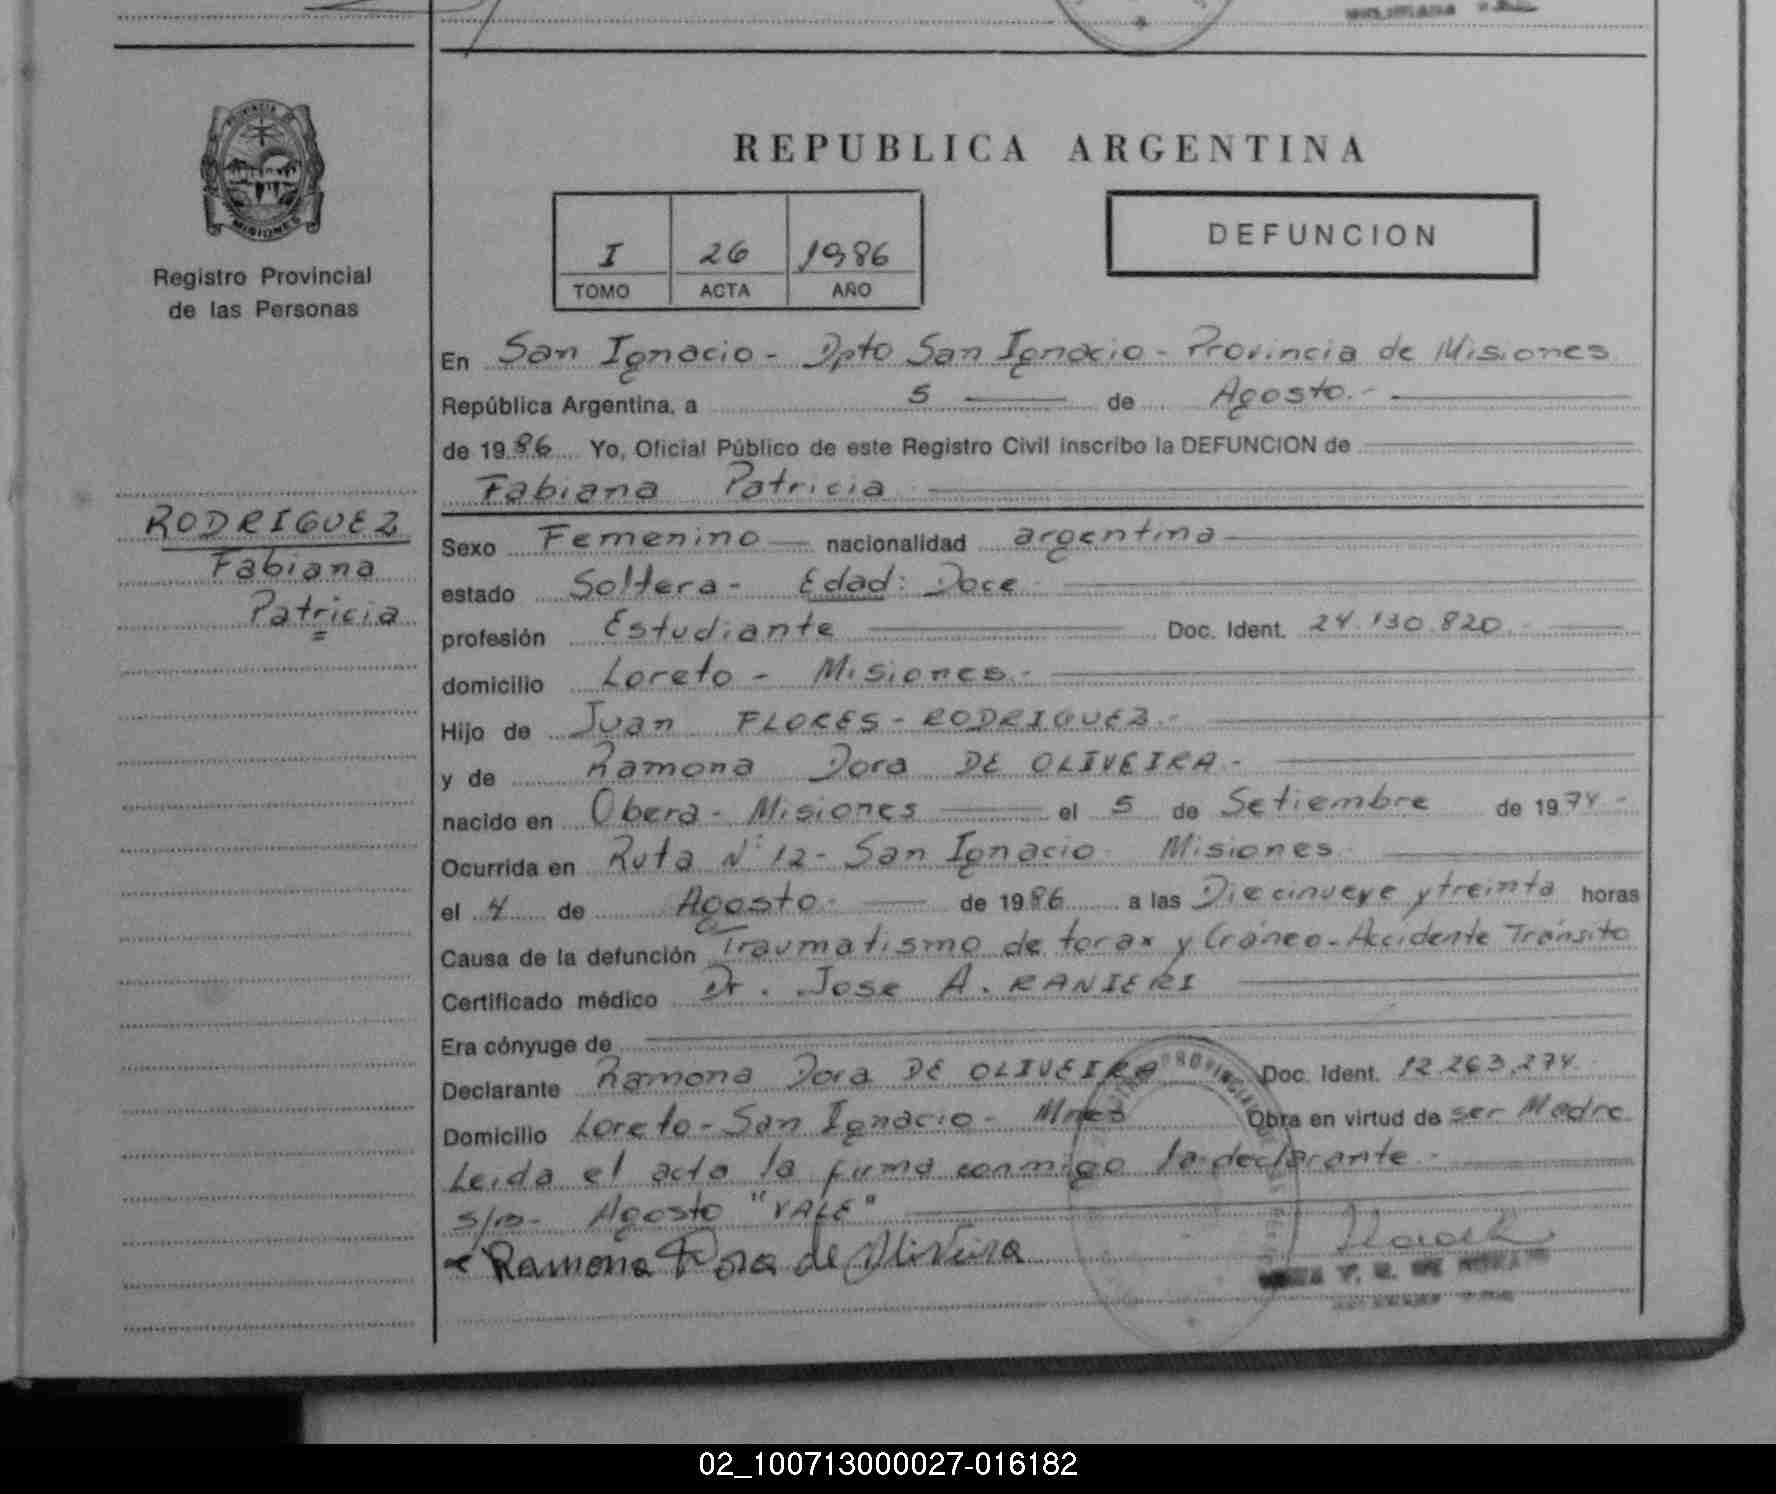 PROVINCIA DE
MISIONES
Registro Provincial
de las Personas
RODRIGUEZ
Fabiana
Patricia
REPUBLICA ARGENTINA
I 26 1986
TOMO ACTA AÑO
DEFUNCION
En San Ignacio - Dpto San Ignacio - Provincia de Misiones
República Argentina, a 5 de Agosto.-
de 1986 Yo, Oficial Público de este Registro Civil inscribo la DEFUNCION de
Fabiana Patricia
Sexo Femenino nacionalidad argentina
estado Soltera - Edad: Doce
profesión Estudiante Doc. Ident. 24.130.820.-
domicilio Loreto - Misiones.-
Hijo de Juan FLORES - RODRIGUEZ.-
y de Ramona Dora DE OLIVEIRA.-
nacido en Obera - Misiones el 5 de Setiembre de 1974-
Ocurrida en Ruta N° 12 - San Ignacio Misiones
el 4 de Agosto.- de 1986 a las Diecinueve y treinta horas
Causa de la defunción Traumatismo de torax y Cráneo - Accidente Tránsito
Certificado médico Dr. Jose A. RANIERI
Era cónyuge de
Declarante Ramona Dora DE OLIVEIRA Doc. Ident. 12.263.274.
Domicilio Loreto - San Ignacio - Mnes Obra en virtud de ser Madre.
Leida el acta la firma conmigo la declarante.-
s/ro- Agosto "VALE"
Ramona Dora de Oliveira
02_100713000027-016182